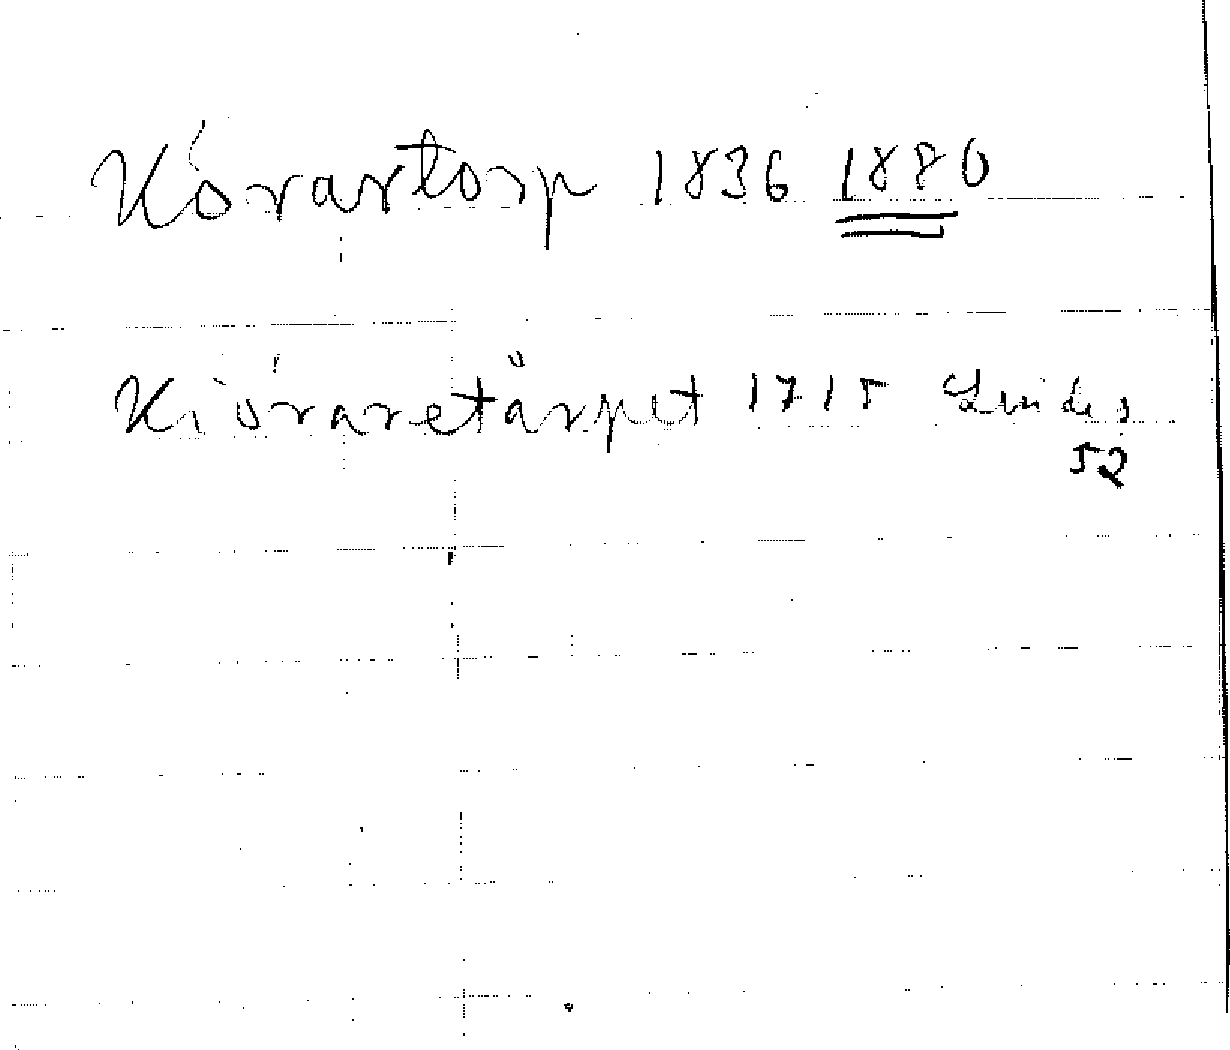 Kórartorp 1836 1880
Kiöraretårpet 1715
52